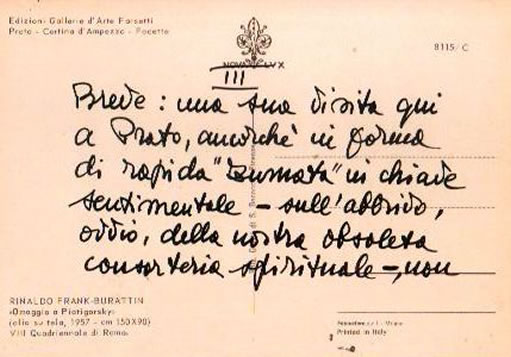 Edizioni Gallerie d'Arte Farsetti
Prato - Cortina d'Ampezzo - Focette
8115/C
NOVA LVX
III
Breve: una sua visita qui
a Prato, ancorché in forma
di rapida "zumata" in chiave
sentimentale - sull'abbrivo,
oddio, della nostra obsoleta
consorteria spirituale -, non
RINALDO FRANK-BURATTIN
«Omaggio a Piatigorsky»
(olio su tela, 1957 - cm 150X90)
VIII Quadriennale di Roma.
Printed in Italy